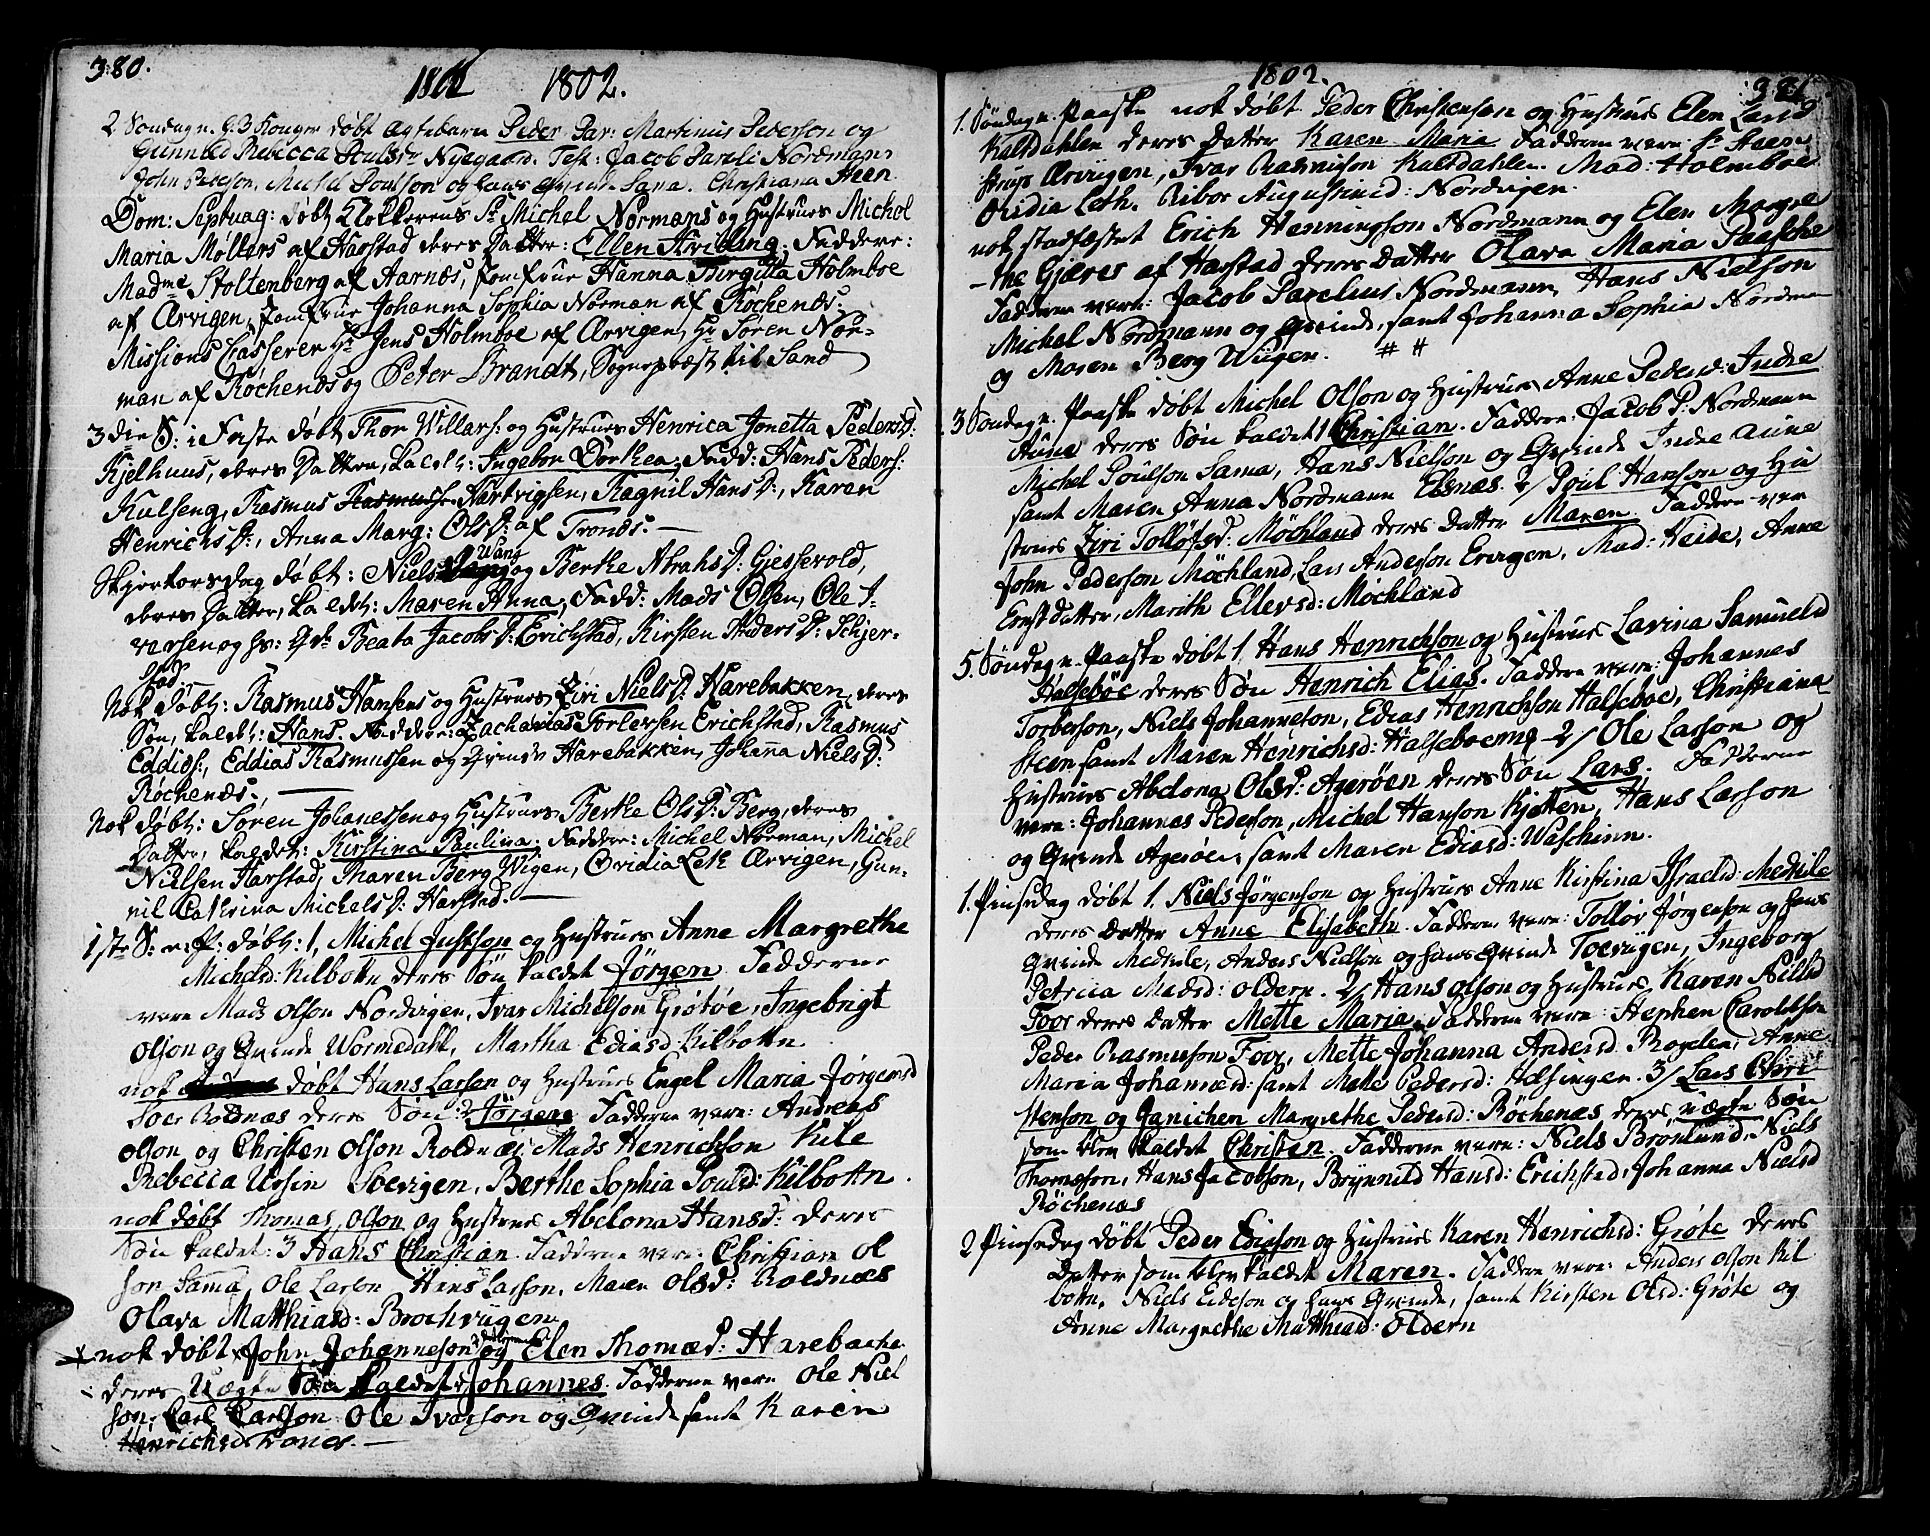 380.
1802.
2 Søndag e. H: 3 Konger døbt Ægtebarn Peder Par: Martinus Pederson og
Gunnild Rebecca Poulsdr Nyegaard. Test: Jacob Pareli Nordman,
John Pederson, Michel Poulson og hans Qvinde Sama. Christiana Steen.
Dom: Septuag: døbt Klokkerens Sr Michel Normans og Hustrues Michol
Maria Møllers af Harstad deres Datter: Ellen Hvibling. Faddere:
Madme Stoltenberg af Aarnæs, Jomfrue Hanna Birgitta Holmboe
af Ærvigen, Jomfrue Johanna Sophia Norman af Røchenæs,
Missions Casserer Hr Jens Holmboe af Ærvigen, Hr Søren Nor-
man af Røchenæs og Peter Brandt, Sognepræst til Sand
3 die S: i Faste døbt Thor Willars: og Hustrues Henrica Jonetta Peders D:
Kjelhuus, deres Datter, kaldt: Ingebor Dorthea; Fadd: Hans Peders:
Kulseng, Rasmus Hartvigsen, Ragnil Hans D:, Karen
Henrichs D:, Anna Marg: Ols D: af Trones. —
Skjertorsdag døbt: Niels Wang og Berthe Abrahs D: Giessevold,
deres Datter, kaldet: Maren Anna, Fadd: Mads Olsen, Ole I-
versen og hs: Qde Beata Jacobs D: Erichstad, Kirsten Anders D: Schjer-
stad.
Nok døbt: Rasmus Hansens og Hustrues Ziri Niels D: Harebakken, deres
Søn, kaldet: Hans. Faddere: Zacharias Torlevsen Erichstad, Rasmus
Eddids:, Eddias Rasmussen og Qvinde Harebakken, Johanna Niels D:
Røchenæs. —
Nok døbt: Søren Johanessen og Hustrues Berthe Ols D: Berg, deres
Datter, kaldet: Kirstina Paulina. Faddere: Michel Norman, Michel
Nielsen Harstad, Maren Berg Wigen, Ovidia Leth Ærvigen, Gun-
nil Cathrina Michels D: Harstad. —
1ste S: e: P: døbt: 1, Michel Justson og Hustrues Anne Margrethe
Michelsd: Kilbottn deres Søn kaldet Jørgen. Fadderne
vare Mads Olson Nordvigen, Ivar Michelson Grøtøe, Ingebrigt
Olson og Qvinde Wormedahl, Martha Ediasd Kilbottn
nok døbt Hans Larsen og Hustrues Engel Maria Jørgensd
Roldnæs deres Søn: 2 Jørgene Fadderne vare: Andreas
Olson og Christen Olson Roldnæs, Mads Henrichson Kile
Rebecca Ursin Soevigen, Berthe Sophia Poulsd: Kilbottn.
nok døbt Thomas Olson og Hustrues Abelona Hansd: deres
Søn kaldet: 3 Hans Christian. Fadderne vare: Christian Ol
son Sama, Ole Larson Hans Larsson, Maren Olsd: Roldnæs
Olava Matthiasd: Brochviigen
nok døbt John Johanneson og Elen Thomæd: Harebache
deres Uægte Søn kaldet Johannes. Fadderne vare Ole Niel
son, Carl Carlson Ole Ivarson og Qvinde samt Karen
Henrichsd Trones. —
1802.
381
1. Søndag e. Paaske nok døbt Peder Christenson og Hustrues Elen Larsd
Kaltdahlen deres Datter Karen Maria Fadderne vare: Sr Hæge-
strup Ærvigen, Ivar Rasmuson Kaltdahlen. Mad: Holmboe
Ovidia Leth. Ribor Augustind: Nordvigen.
nok stadfæstet Erich Henningson Nordmann og Elen Margre
-the Gjæres af Harstad deres Datter Olava Maria Paasche
Fadderne vare: Jacob Parelius Nordmann, Hans Nielson
Michel Nordmann og Qvinde, samt Johanna Sophia Nordman
og Maren Berg Wiigen. # #
3 Søndag e. Paaske døbt Michel Olson og Hustrues Anne Pedersd: Indre
Aune deres Søn kaldet 1 Christian. Faddere: Jacob P: Nordmann
Michel Poulson Sama, Hans Nielson og Qvinde Indre Aune
samt Maren Anna Nordmann Elsnæs. 2/ Poul Hanson og Hu
strues Ziri Tollofsd: Møchland deres Datter Maren. Faddere var
John Pederson Møchland, Lars Anderson Ervigen, Mad: Heide, Anne
Ernstdatter, Marith Ellevsd: Møchland
5. Søndag e. Paaske døbt 1 Hans Henrichson og Hustrues Lavina Samuelsd
Halsebøe deres Søn Henrich Elias. Faddere vare: Johannes
Torberson, Niels Johanneson, Edias Henrichson Halseboe, Christiana
Steen samt Maren Henrichsd: Halseboemg 2/ Ole Larson og
Hustrues Abelona Olsd: Agerøen deres Søn Lars. Fadderne
vare: Johannes Pederson, Michel Hanson Kjøtten, Hans Larson
og Qvinde Agerøen samt Maren Ediasd: Waschinn.
1. Pinsedag døbt 1. Niels Jørgenson og Hustrues Anne Kirstina Israelsd Medkile
deres Datter Anne Elisabeth. Fadderne vare: Tollor Jørgenson og hans
Qvinde Medkile, Anders Nielson og hans Qvinde Toeviigen, Ingeborg
Petrica Madsd: Oldern. 2/ Hans Olson og Hustrues Karen Nielsd
Foor deres Datter Mette Maria. Fadderne vare: Stephen Caroldson
Peder Rasmuson Foor, Mette Johanna Andersd Rogelen, Anne
Maria Johannæsd: samt Mette Pedersd: Helsingen. 3/ Lars Chri
stenson og Janichen Margrethe Pedersd: Røchenæs deres uægte Søn
som blev kaldet Christen. Fadderne vare: Niels Brønlund, Niels
Thomæson, Hans Jacobson, Brynnild Hansd: Erichstad, Johanna Nielsd
Røchenæs
2 Pinsedag døbt Peder Ediason og Hustrues Karen Henrichsd: Grøte deres
Datter som blev kaldet Maren. Faddere vare: Anders Olson Kil
bottn, Niels Edeson og hans Qvinde, samt Kirsten Olsd: Grøte og
Anne Margrethe Matthiasd: Oldern